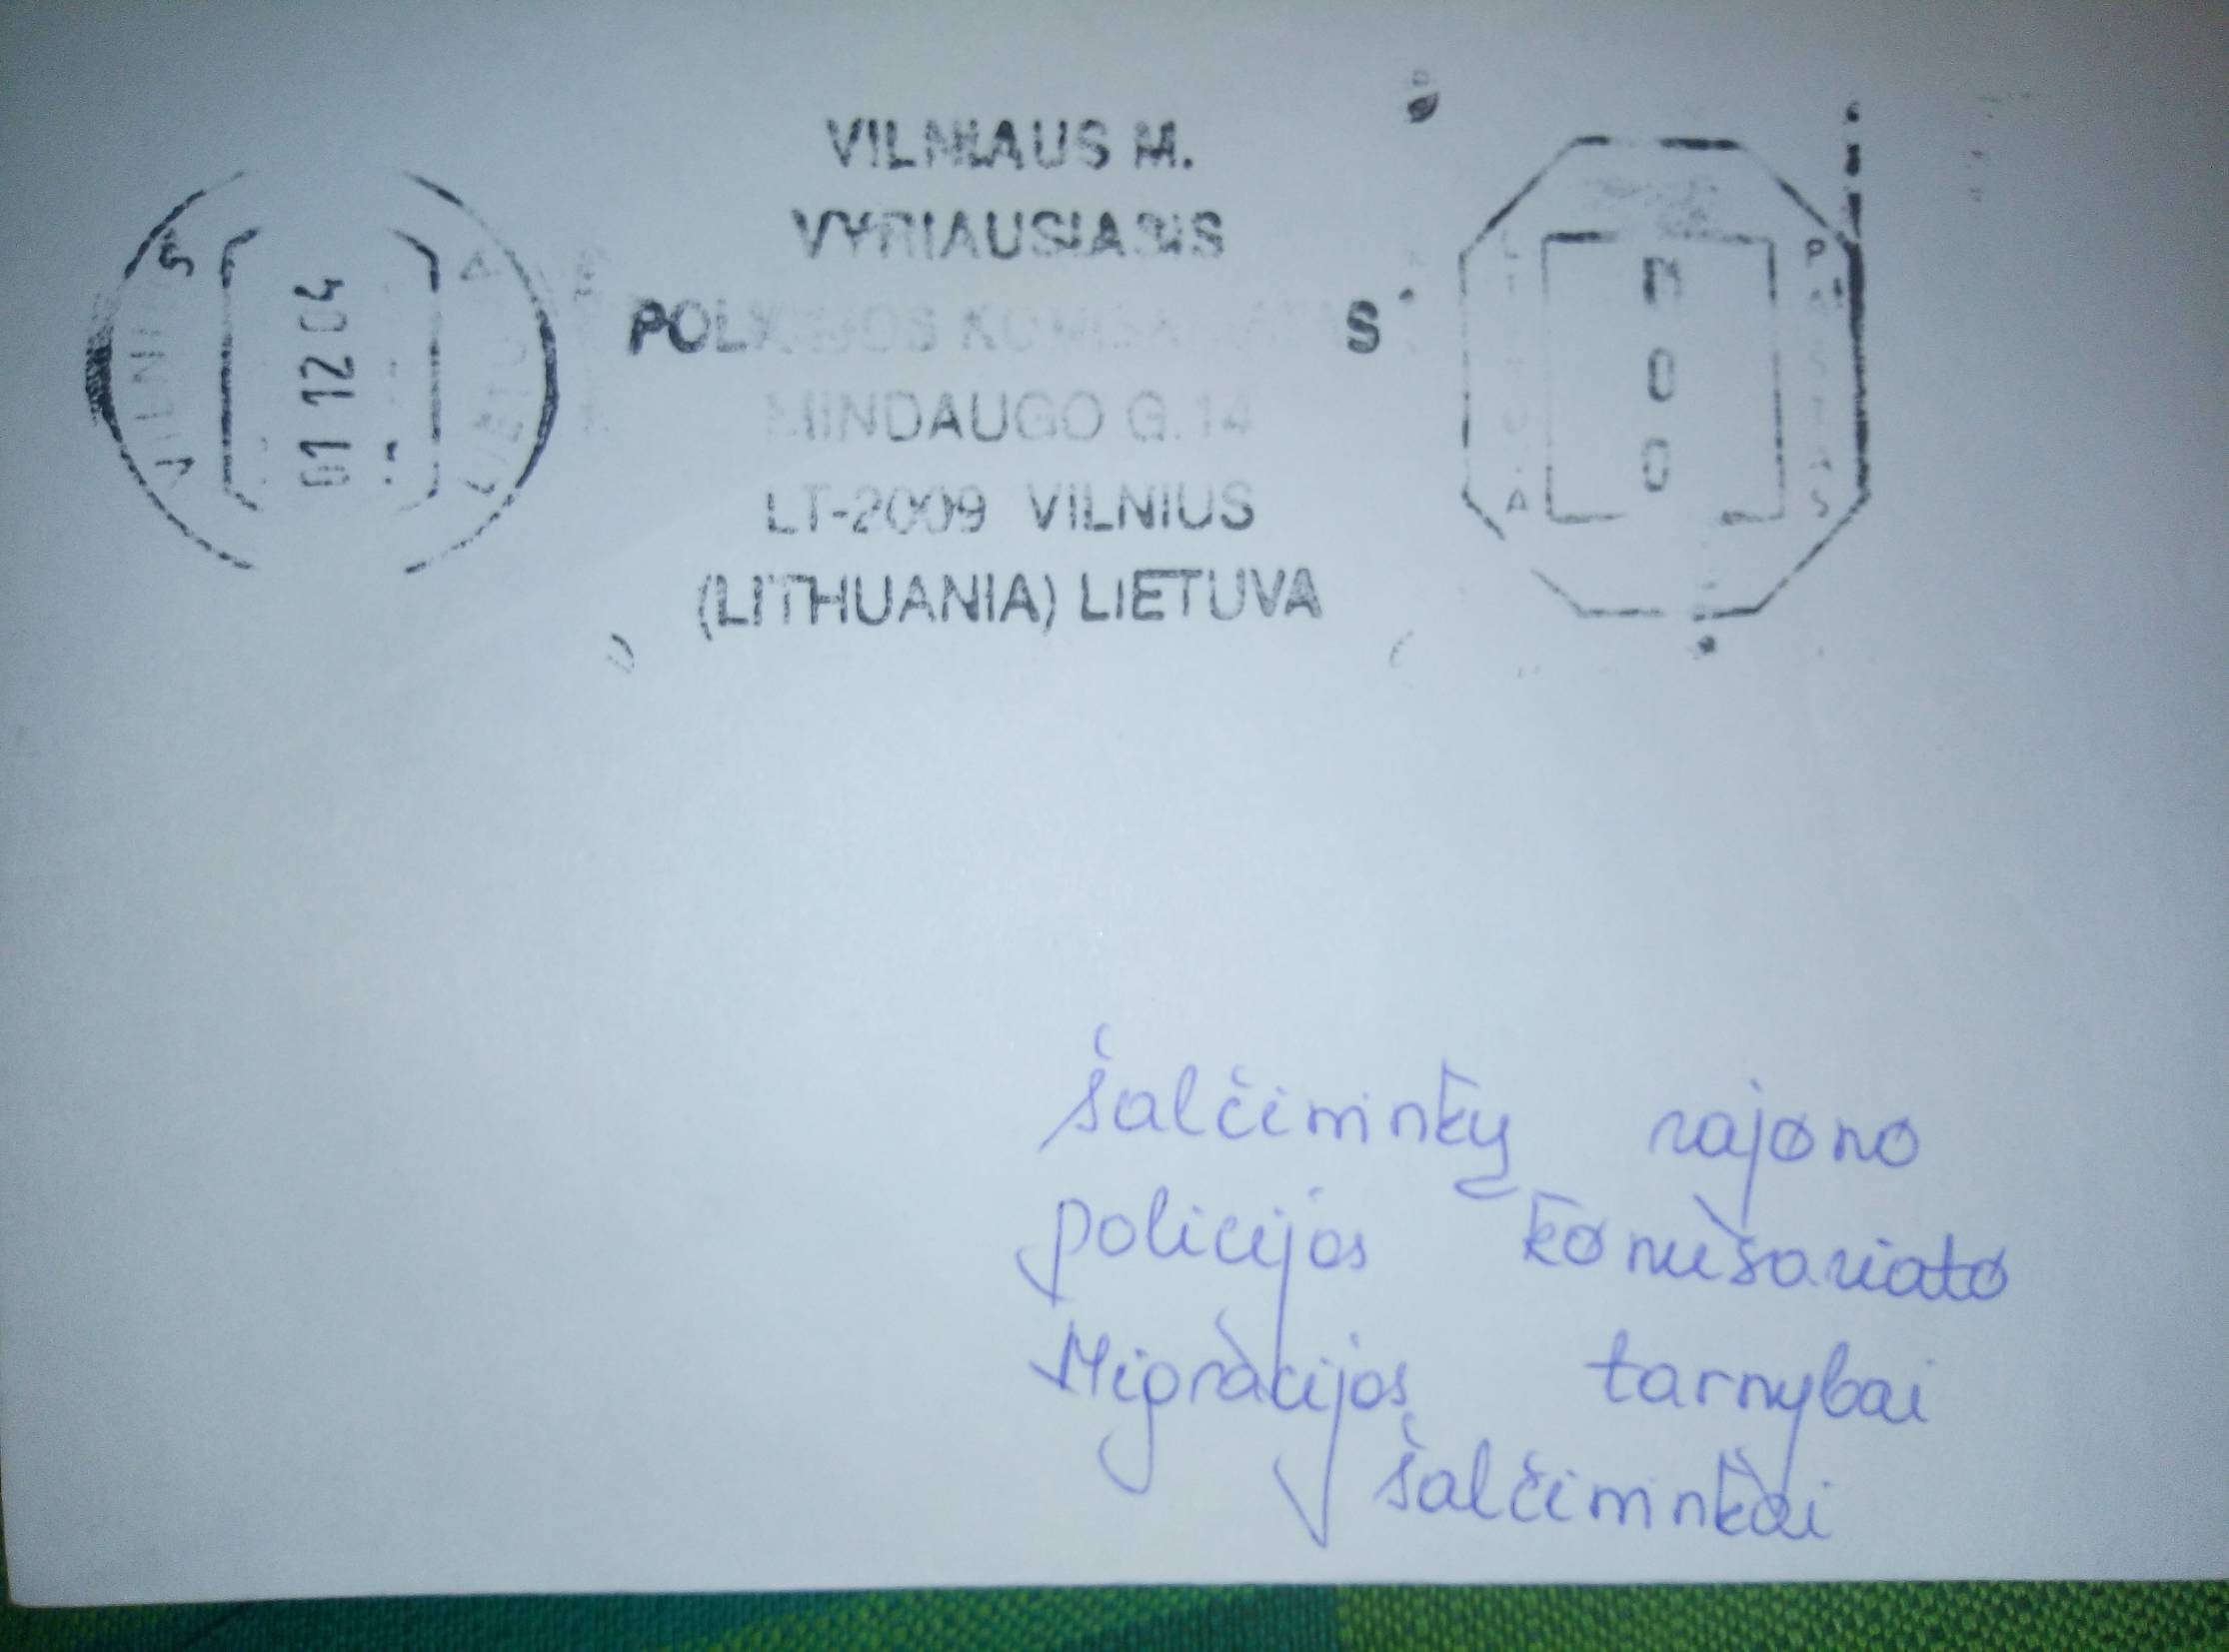 VILNIUS
01 12 04
LIETUVA
VILNIAUS M.
VYRIAUSIASIS
POLICIJOS KOMISARIATAS
MINDAUGO G.14
LT-2009 VILNIUS
(LITHUANIA) LIETUVA
LIETUVA
00
PAŠTAS
Šalčininkų rajono
policijos komisariato
Migracijos tarnybai
Šalčininkai